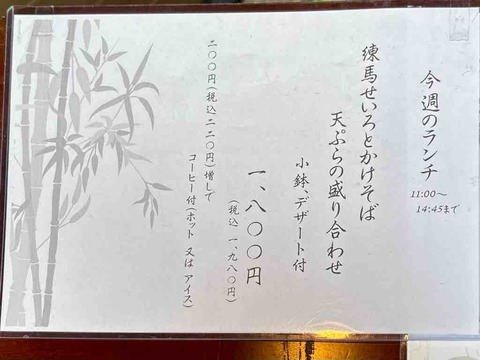 今週のランチ
11:00～
14:45まで
練馬せいろとかけそば
天ぷらの盛り合わせ
小鉢、デザート付
一、八〇〇円
(税込 一、九八〇円)
二〇〇円(税込二二〇円)増しで
コーヒー付(ホット 又は アイス)